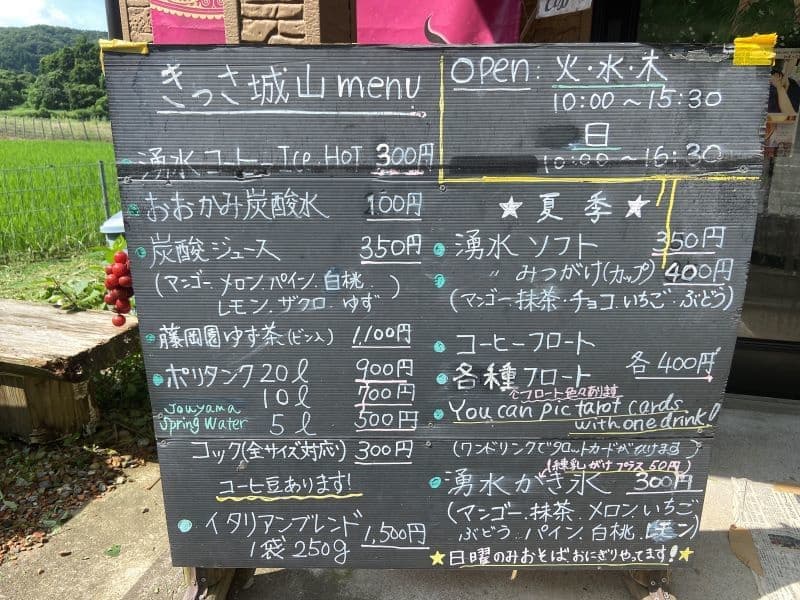 きっさ城山 menu
湧水コーヒー Ice. HOT 300円
おおかみ炭酸水 100円
炭酸ジュース 350円
(マンゴー. メロン. パイン. 白桃.
レモン. ザクロ. ゆず )
藤岡園ゆず茶(ビン入) 1,100円
ポリタンク 20ℓ 900円
10ℓ 700円
5ℓ 500円
Jouyama
Spring Water
コック(全サイズ対応) 300円
コーヒ豆あります!
イタリアンブレンド
1袋 250g 1,500円
OPen: 火・水・木
10:00～15:30
日
10:00～16:30
★ 夏季 ★
湧水ソフト 350円
〃 みつがけ(カップ) 400円
(マンゴー. 抹茶・チョコ. いちご・ぶどう)
コーヒーフロート
各種フロート 各400円
You can pic tarot cards
with one drink!
(ワンドリンクでタロットカードがひけまる )
(練乳がけプラス50円)
湧水かき氷 300円
(マンゴー. 抹茶. メロン. いちご
ぶどう. パイン. 白桃.
★日曜のみおそば、おにぎりやってます!★